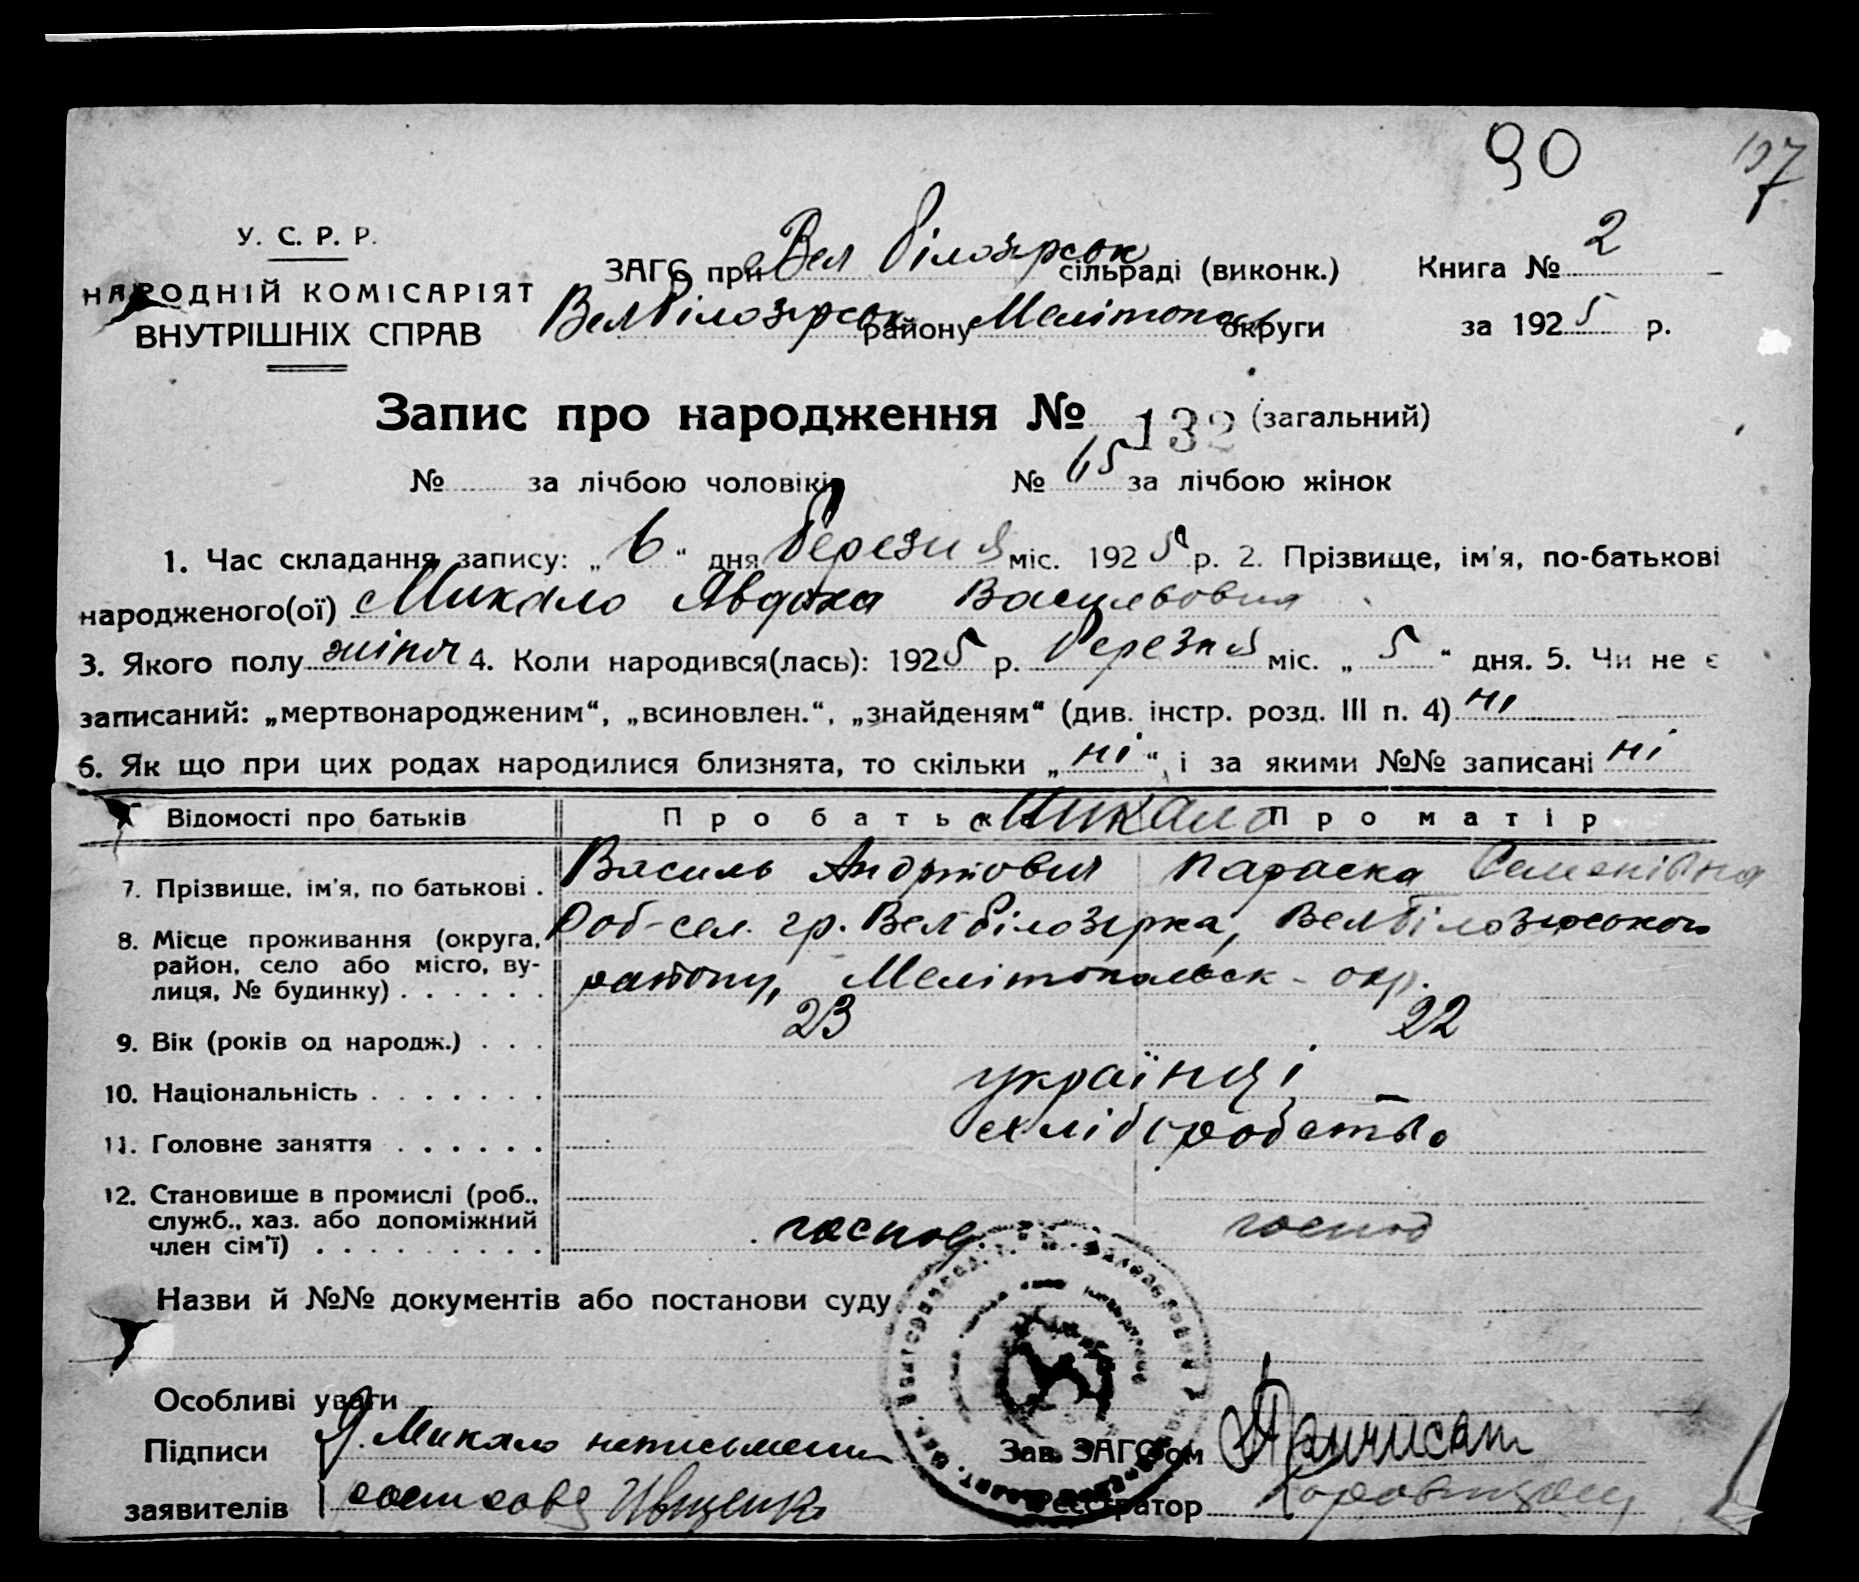 90
У. С. Р. Р.
НАРОДНІЙ КОМІСАРІЯТ
ВНУТРІШНІХ СПРАВ
ЗАГС при Вел Білозірськ сільраді (виконк.) Книга № 2
ВелБілозірськ району Мелітопол округи за 1925 р.
Запис про народження № 132 (загальний)
№ за лічбою чоловіків № 65 за лічбою жінок
1. Час складання запису: „ 6 “ дня березня міс. 1925 р. 2. Прізвище, ім'я, по-батькові
народженого(ої) Микало Явдоха Васильовна
3. Якого полу жіноч 4. Коли народився(лась): 1925 р. березня міс. „ 5 “ дня. 5. Чи не є
записаний: „мертвонародженим“, „всиновлен.“, „знайденям“ (див. інстр. розд. III п. 4) ні
6. Як що при цих родах народилися близнята, то скільки „ ні “ і за якими №№ записані ні
Відомості про батьків Про батька Микало Про матір
7. Прізвище, ім'я, по батькові . Василь Андрійович Параска Семенівна
8. Місце проживання (округа, район, село або місто, вулиця, № будинку) . . . . . . сел. гр. Вел Білозірка, ВелБілозірського
району, Мелітопольськ - окр.
9. Вік (років од народж.) . . . 23 22
10. Національність . . . . . . . українці
11. Головне заняття . . . . . . хліборобство
12. Становище в промислі (роб.,
служб., хаз. або допоміжний
член сім'ї) . . . . . . . . . господ. господ
Назви й №№ документів або постанови суду
Особливі уваги
Підписи Микало неписьмен
заявителів Іващенко
Зав. ЗАГС'ом
Реєстратор